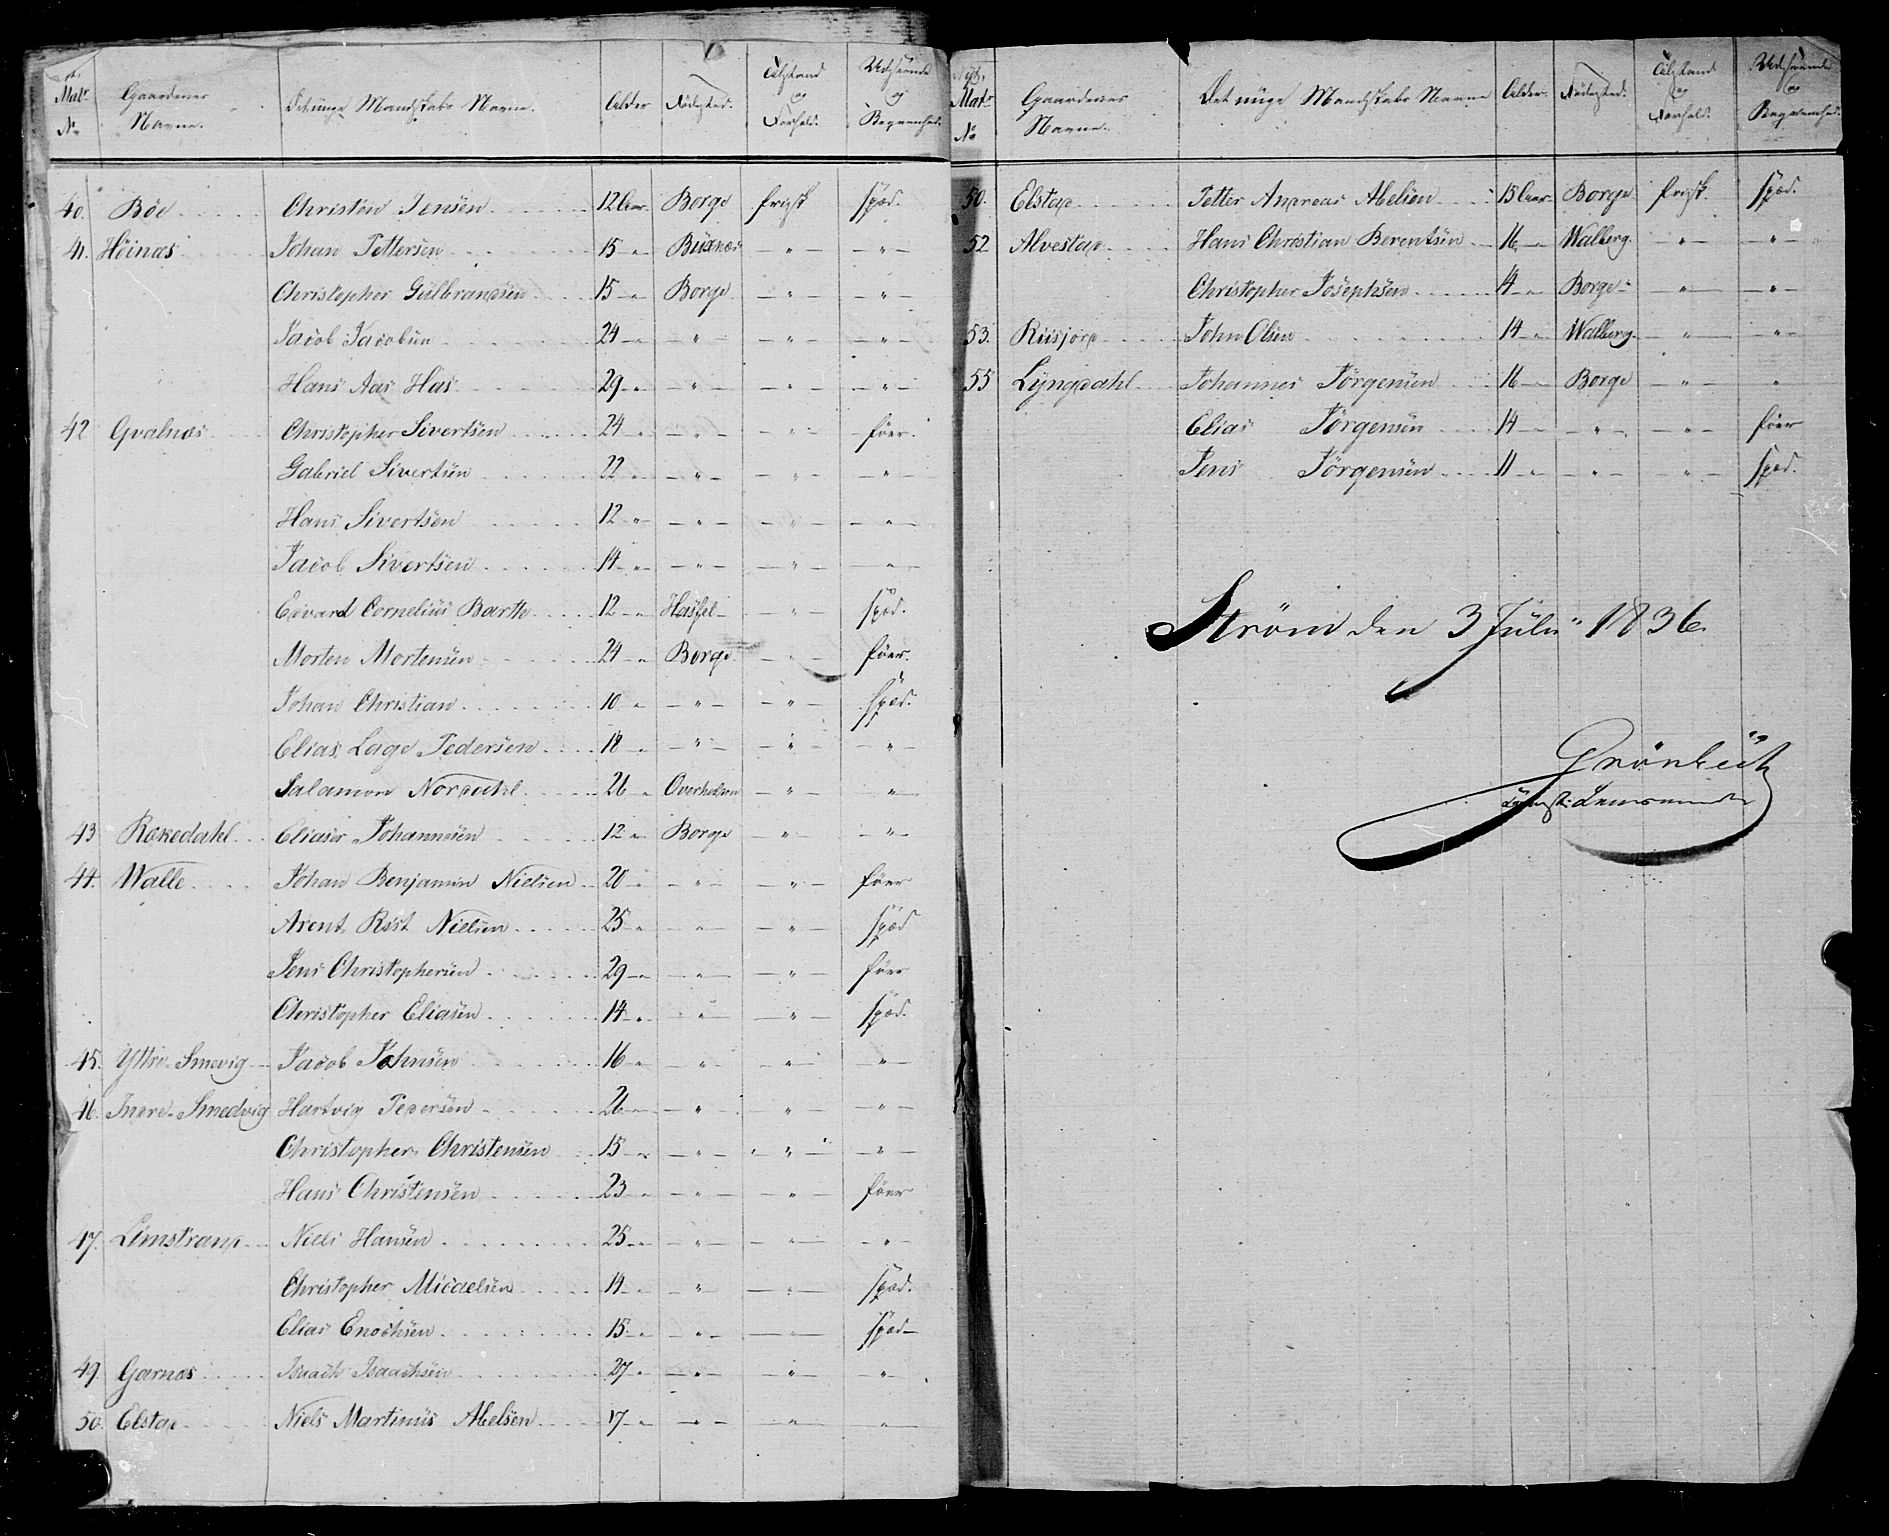 Matr No Gaardenes Navne. Det unge Mandskabs Navne. Alder Fødested. Tilstand og Forhold. Udseende og Beqvemhed.
40. Böe Christen Jensen 12 Aar Borge frisk spæd.
41. Höinæs Johan Pettersen 15 " Buxnæs " "
Christopher Gulbrandsen 15 " Borge " "
Jacob Jacobsen 24 " " " "
Hans Aas Has 29 " " " "
42 Gvalnæs Christopher Sivertsen 24 " " " föer.
Gabriel Sivertsen 22 " " " "
Hans Sivertsen 12 " " " "
Jacob Sivertsen 14 " " " "
Edvard Cornelius Barth 12 " Hassel " spæd.
Morten Mortensen 24 " Borge " föer.
Johan Christian 10 " " " spæd.
Elias Lage Pedersen 18 " " " "
Salamon Nordahl 26 " Overhalden " "
43 Rækedahl Eliaser Johannesen 12 " Borge " "
44. Walle Johan Benjamin Nielsen 20 " " " föer
Arent Rist Nielsen 25 " " " spæd
Jens Christophersen 29 " " " föer
Christopher Eliasen 14 " " " spæd.
45. Yttre Smevig Jacob Johnsen 16 " " " "
46. Indre Smedvig Hartvig Pedersen 26 " " " "
Christopher Christensen 15 " " " "
Hans Christensen 23 " " " föer
47. Limstrand Niels Hansen 25 " " " "
Christopher Micaelsen 14 " " " spæd.
Elias Enochsen 15 " " " spæd
49. Garnæs Isaach Isaachsen 27 " " " "
50. Elstad Niels Martinus Abelsen 17 " " " "
Matr No Gaardenes Navne. Det unge Mandskabs Navne Alder. Fødested. Tilstand og Forhold. Udseende og Beqvemhed.
50. Elstad Petter Andreas Abelsen 15 Aar Borge frisk. spæd.
52 Alvestad Hans Christian Berentsen 16 " Walberg. " "
Christopher Josephsen 14 " Borge " "
53. Riisjord John Olsen 14 " Walberg. " "
55 Lyngdahl Johannes Jörgensen 16 " Borge " "
Elias Jörgensen 14 " " " föer
Jens Jörgensen 11 " " " spæd.
Ström den 3 Julii 1836.
Grönbech
Lensmand